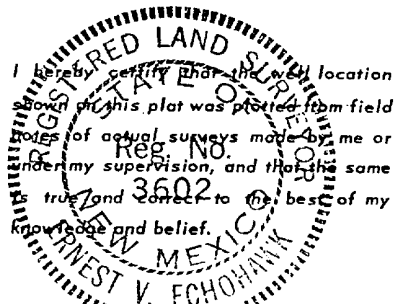 I hereby certify that the well location
shown on this plat was plotted from field
notes of actual surveys made by me or
under my supervision, and that the same
is true and correct to the best of my
knowledge and belief.
REGISTERED LAND SURVEYOR
STATE OF
Reg. No.
3602
NEW MEXICO
ERNEST V. ECHOHAWK